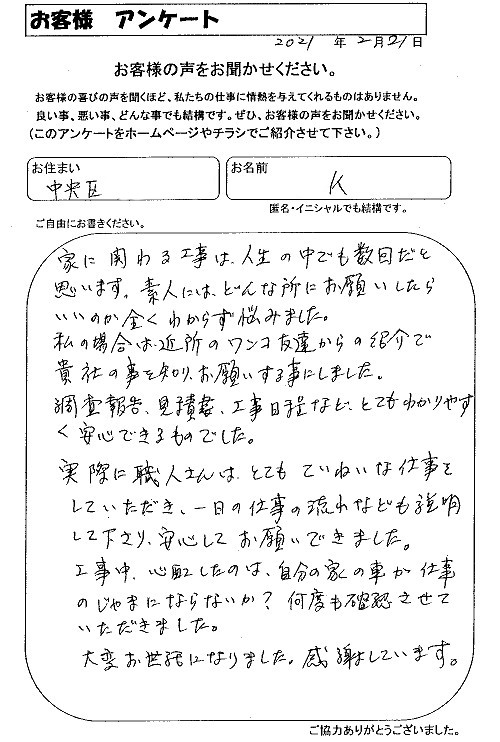 お客様 アンケート
2021 年 2月21日
お客様の声をお聞かせください。
お客様の喜びの声を聞くほど、私たちの仕事に情熱を与えてくれるものはありません。
良い事、悪い事、どんな事でも結構です。ぜひ、お客様の声をお聞かせください。
(このアンケートをホームページやチラシでご紹介させて下さい。)
お住まい
中央区
お名前
K
匿名・イニシャルでも結構です。
ご自由にお書きください。
家に関わる工事は、人生の中でも数回だと
思います。素人には、どんな所にお願いしたら
いいのか全くわからず悩みました。
私の場合は、近所のワンコ友達からの紹介で
貴社の事を知り、お願いする事にしました。
調査報告、見積書、工事日程など、とてもわかりやす
く安心できるものでした。
実際に職人さんは、とてもていねいな仕事を
していただき、一日の仕事の流れなども説明
して下さり、安心してお願いできました。
工事中、心配したのは、自分の家の車が仕事
のじゃまにならないか? 何度も確認させて
いただきました。
大変お世話になりました。感謝しています。
ご協力ありがとうございました。